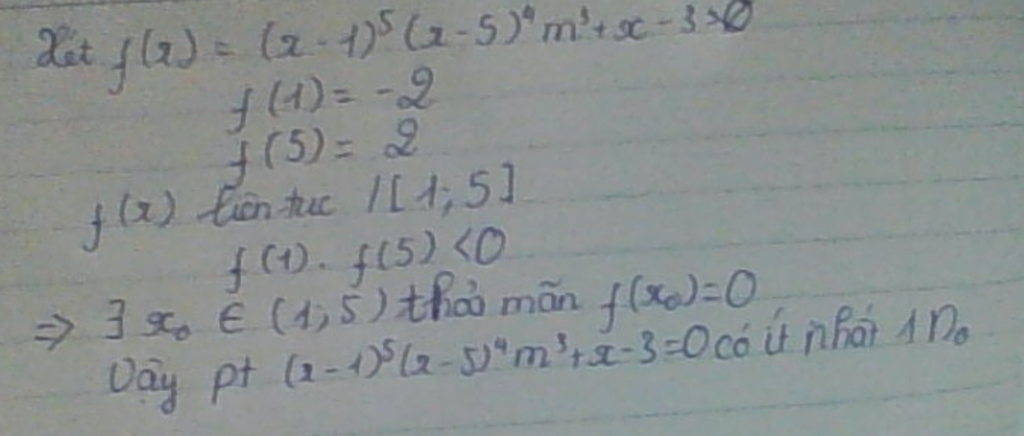 Xét f(x) = (x-1)⁵(x-5)⁴m³+x-3=0
f(1) = -2
f(5) = 2
f(x) liên tục /[1;5]
f(1). f(5) <0
⇒ ∃ x₀ ∈ (1;5) thỏa mãn f(x₀)=0
Vậy pt (x-1)⁵(x-5)⁴m³+x-3=0 có ít nhất 1 n₀